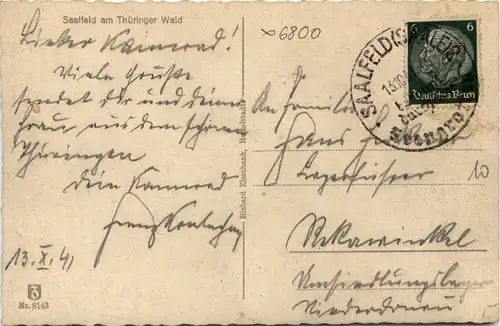 Saalfeld am Thüringer Wald
6800
Lieber Kamerad!
Viele Grüße
sendet dir und deiner
Frau aus dem schönen
Thüringen
Dein Kamerad
Franz
13. X. 41
Nr. 8143
Richard Zieschank, Rudolstadt
SAALFELD (SAALE)
13.10.
Feengrotten
6
Deutsches Reich
An Familie
Hans
Lagerführer
10
Rekawinkel
Umsiedlungslager
Niederdonau